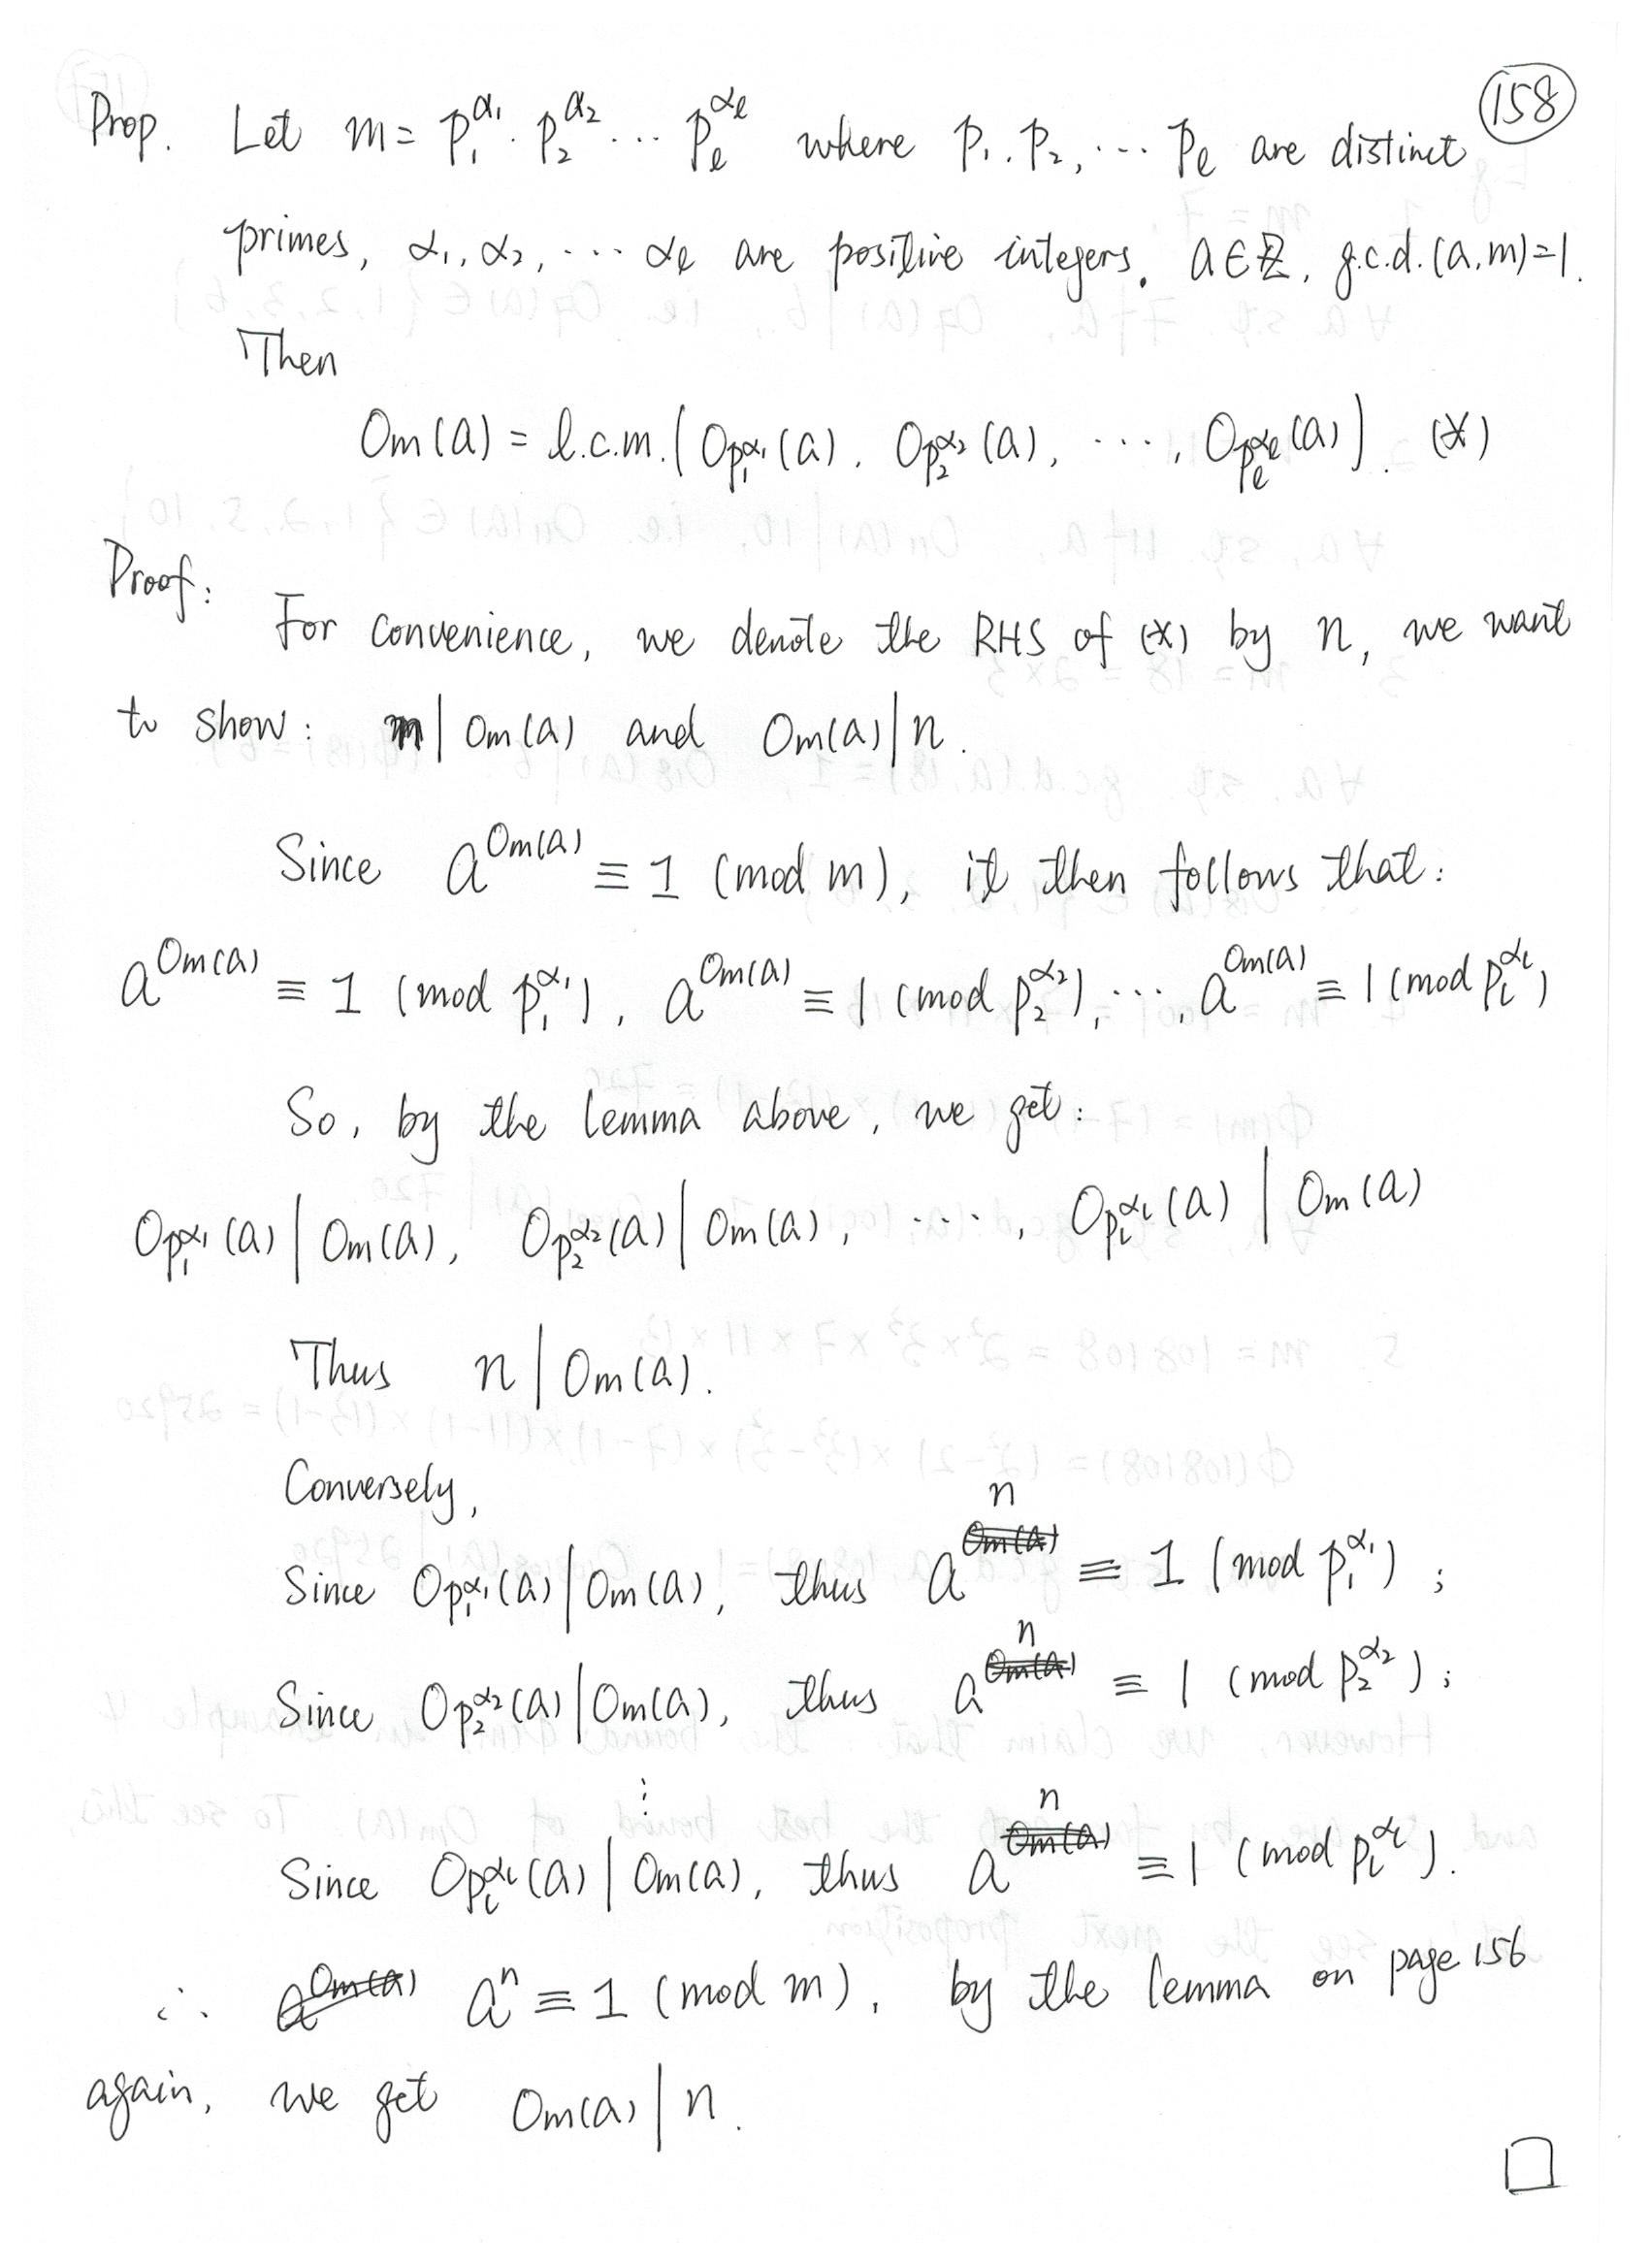 158
Prop. Let m = p₁^α₁ · p₂^α₂ ... p_ℓ^α_ℓ where p₁, p₂, ... p_ℓ are distinct
primes, α₁, α₂, ... α_ℓ are positive integers. a∈ℤ, g.c.d.(a,m)=1.
Then
Om(a) = l.c.m.(Op₁^α₁(a), Op₂^α₂(a), ..., Op_ℓ^α_ℓ(a)). (*)
Proof:
For convenience, we denote the RHS of (*) by n, we want
to show: n | Om(a) and Om(a) | n.
Since a^Om(a) ≡ 1 (mod m), it then follows that:
a^Om(a) ≡ 1 (mod p₁^α₁), a^Om(a) ≡ 1 (mod p₂^α₂), ..., a^Om(a) ≡ 1 (mod p_l^α_l)
So, by the lemma above, we get:
Op₁^α₁(a) | Om(a), Op₂^α₂(a) | Om(a), ..., Op_l^α_l(a) | Om(a)
Thus n | Om(a).
Conversely,
Since Op₁^α₁(a) | Om(a), thus a^n ≡ 1 (mod p₁^α₁);
Since Op₂^α₂(a) | Om(a), thus a^n ≡ 1 (mod p₂^α₂);
⋮
Since Op_l^α_l(a) | Om(a), thus a^n ≡ 1 (mod p_l^α_l).
∴ a^n ≡ 1 (mod m), by the lemma on page 156
again, we get Om(a) | n.
□